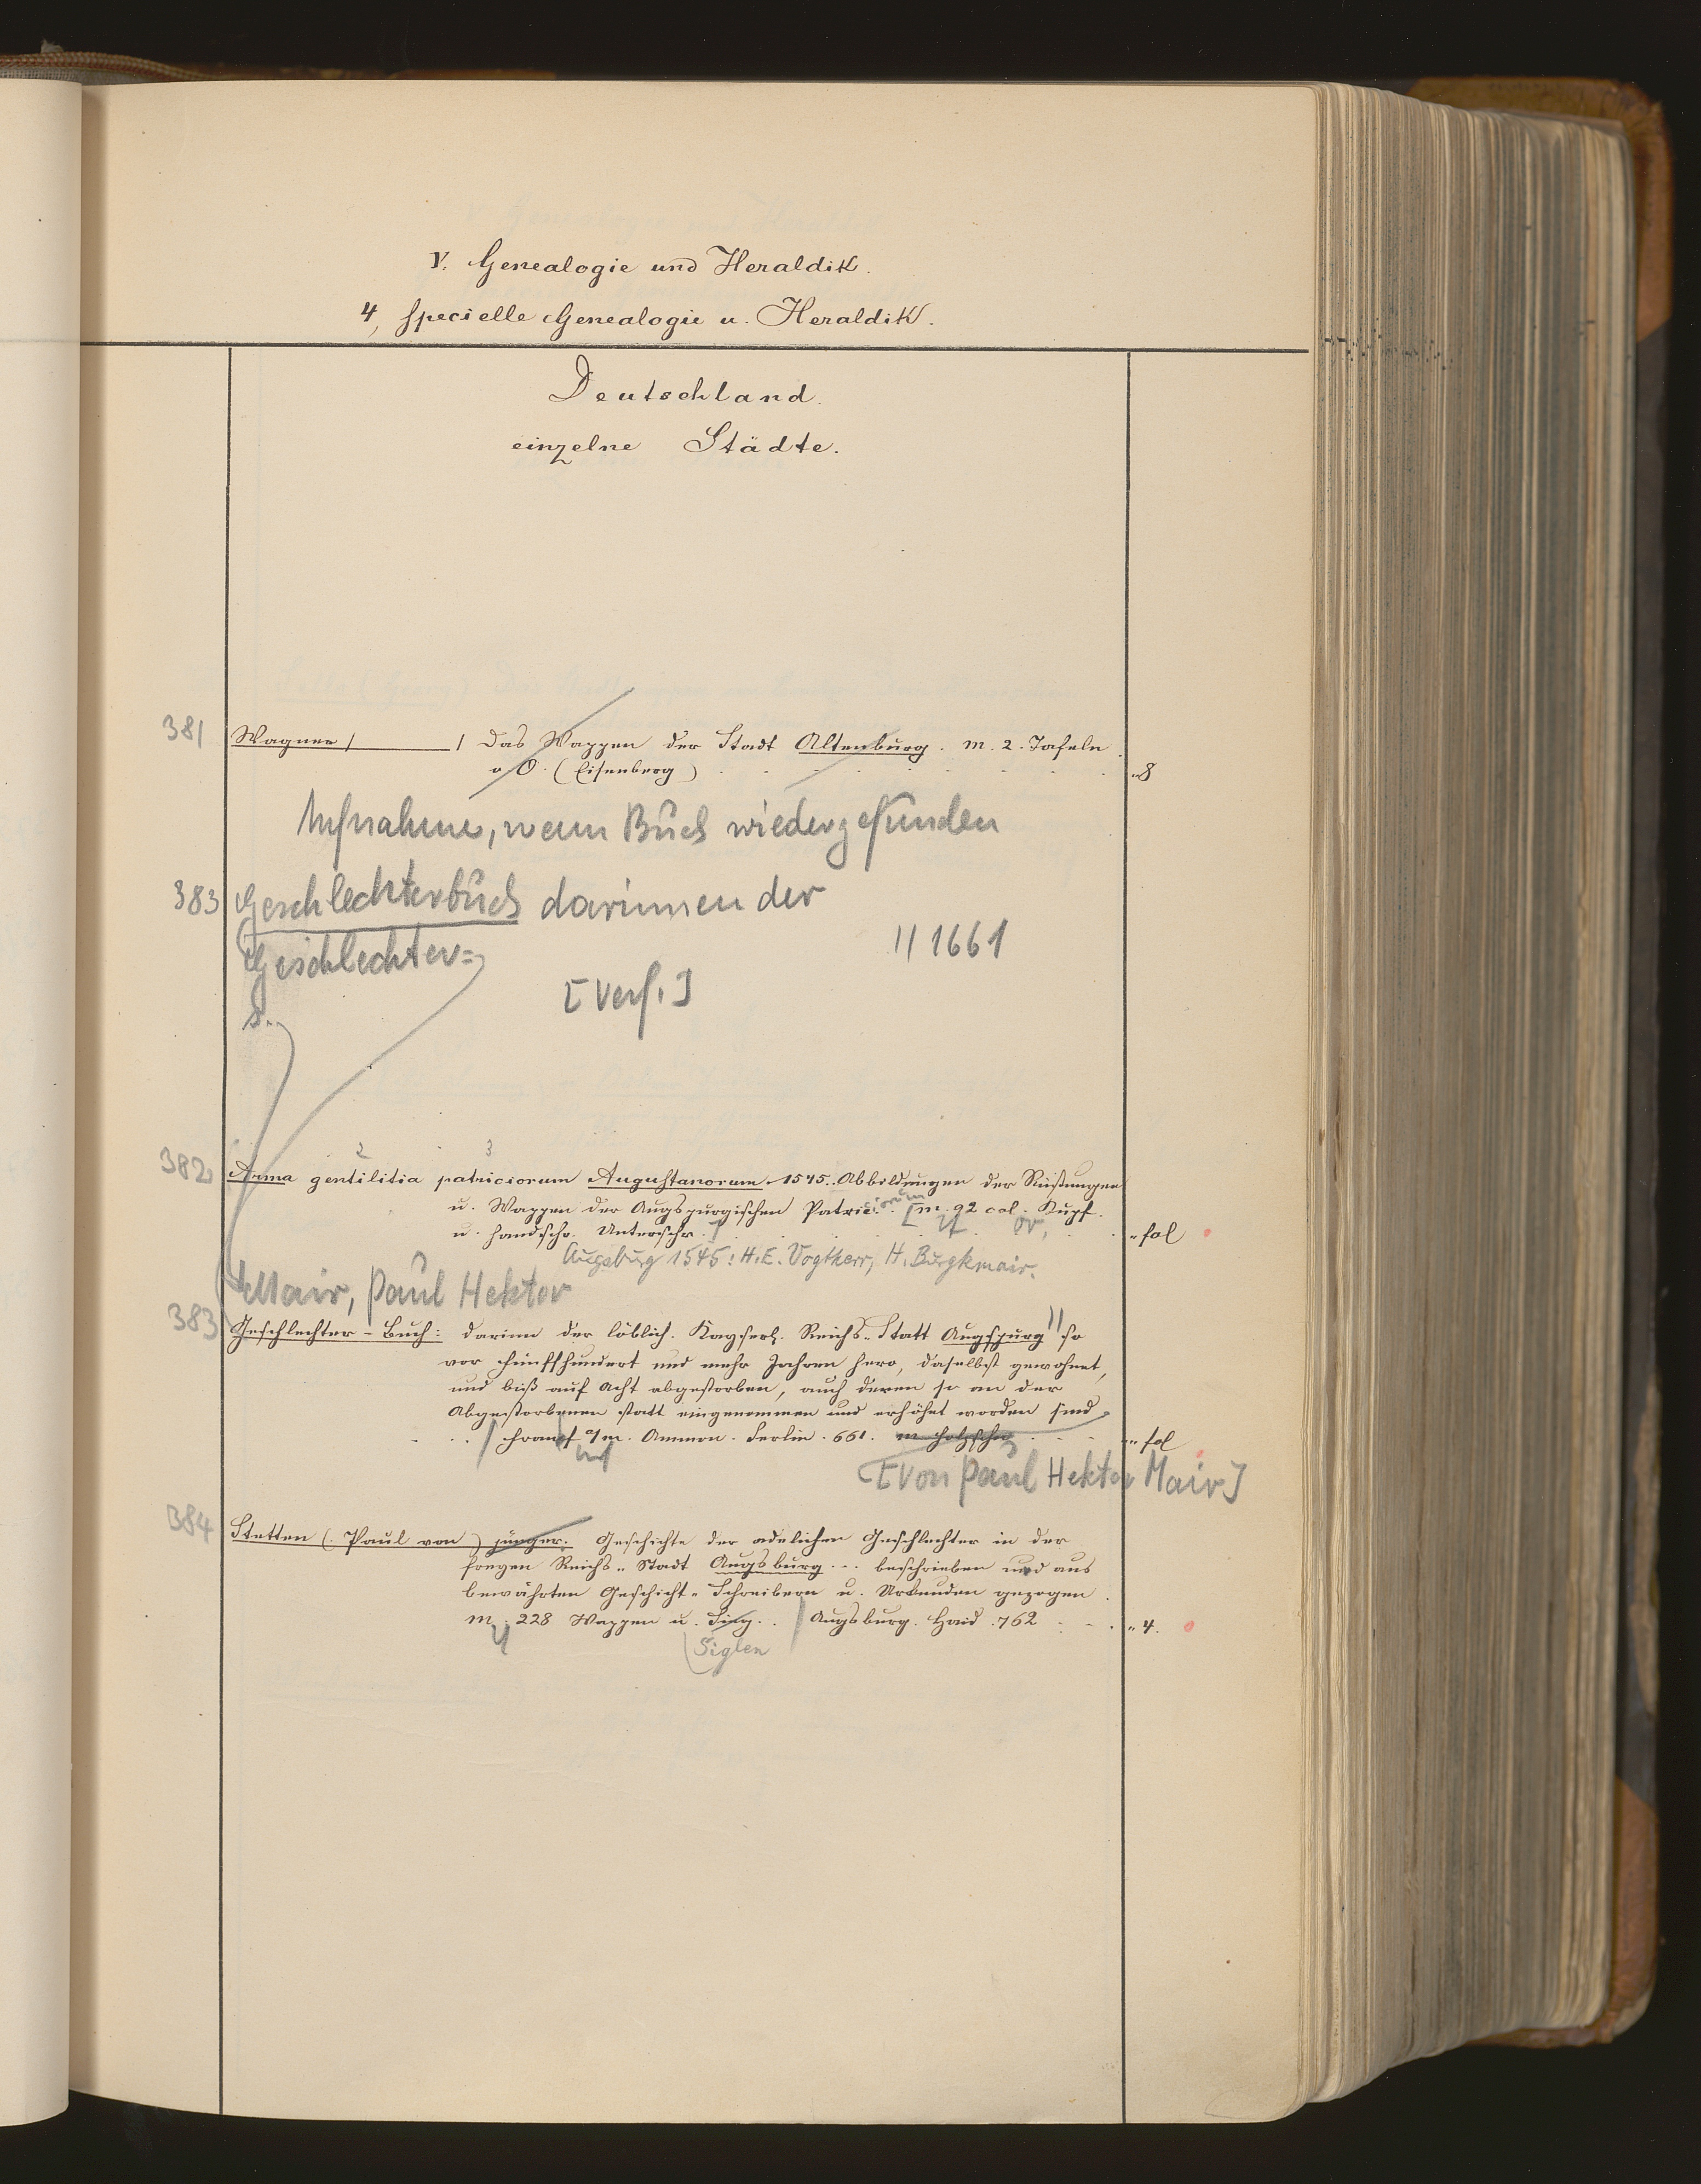 V. Genealogie und Heraldik.
4, specielle Genealogie u. Heraldik.
Deutschland.
einzelne Städte.
381 Wagner ( ) Das Wappen der Stadt Altenburg. m. 2. Tafeln.
O. (Eisenberg) "8
Aufnahme, wenn Buch wiedergefunden
383 Geschlechterbuch darinnen der
Geschlechter= // 1661
[Verf.]
s.
2 3
382 Arma gentilitia patriciorum Augustanorum. 1545. Abbildungen der Rüstungen
u. Wappen der Augspurgischen Patriciorum [m. 92 col. Kupf.
u. handschr. Unterschr.] "fol
Augsburg 1545: H. E. Vogtherr, H. Burgkmair.
Mair, Paul Hektor
383 Geschlechter-Buch: darinn der löblich. Kayserl. Reichs-Statt Augspurg // so
vor fünffhundert und mehr Jahren hero, daselbst gewohnet,
und biß auf acht abgestorben, auch deren so an der
Abgestorbenen statt eingenommen und erhöhet worden sind
/ Francf a/m. Ammon. Serlin. 661. m Holzschn "fol
[Von Paul Hektor Mair]
384 Stetten (Paul von) jünger. Geschichte der adelichen Geschlechter in der
freyen Reichs-Stadt Augsburg... beschrieben und aus
bewährten Geschicht-Schreibern u. Urkunden gezogen.
m. 228 Wappen u. Sieg. / Augsburg. Haid. 762 "4.
Siglen